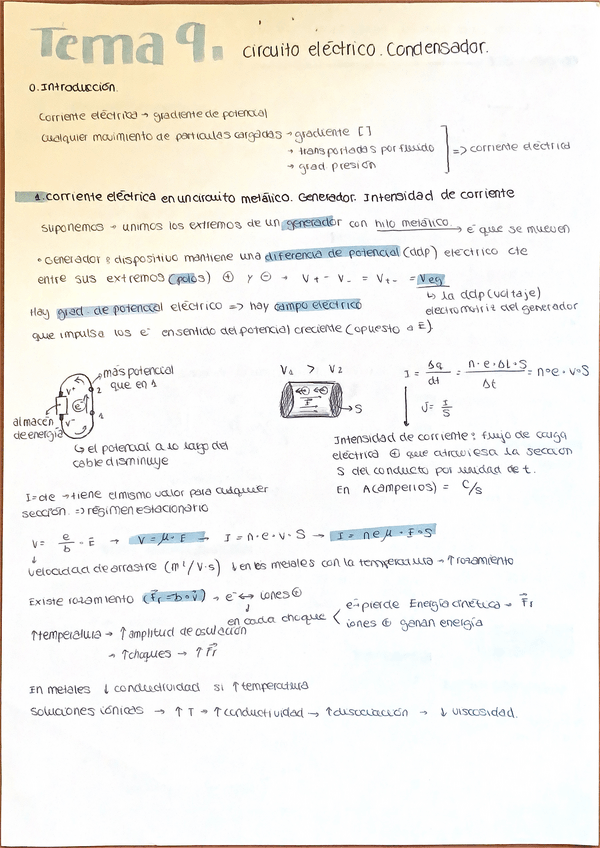 Tema 9. circuito eléctrico. Condensador.
0. Introducción.
Corriente eléctrica → gradiente de potencial
Cualquier movimiento de partículas cargadas → gradiente []
→ transportadas por fluido
→ grad presión
=> corriente eléctrica
1. corriente eléctrica en un circuito metálico. Generador. Intensidad de corriente
Suponemos → unimos los extremos de un generador con hilo metálico. → e⁻ que se mueven
• Generador: dispositivo mantiene una diferencia de potencial (ddp) eléctrico cte
entre sus extremos (polos) ⊕ y ⊖ → V+ - V- = V+- = Veg
↳ la ddp (voltaje)
electromotriz del generador
Hay grad. de potencial eléctrico => hay campo eléctrico
que impulsa los e⁻ en sentido del potencial creciente (opuesto a E)
más potencial
que en 1
V+
2
e⁻
1
V-
almacén
de energía
↳ el potencial a lo largo del
cable disminuye
V₁ > V₂
S
I = Δq/dt = n·e·Δl·S/Δt = n·e·v·S
J = I/S
Intensidad de corriente: flujo de carga
eléctrica ⊕ que atraviesa la sección
S del conducto por unidad de t.
En A(amperios) = C/s
I=cte → tiene el mismo valor para cualquier
sección. => régimen estacionario
V = e/b · E → V = μ · E → I = n·e·v·S → I = n e μ · E · S
velocidad de arrastre (m²/V·s) ↓ en los metales con la temperatura → ↑ rozamiento
Existe rozamiento (Fr = b·v) → e⁻ ↔ iones ⊕
en cada choque < e⁻ pierde Energía cinética → Fr
iones ⊕ ganan energía
↑temperatura → ↑ amplitud de osculación
→ ↑choques → ↑ Fr
En metales ↓ conductividad si ↑ temperatura
Soluciones iónicas → ↑ T → ↑ conductividad → ↑ disociación → ↓ viscosidad.